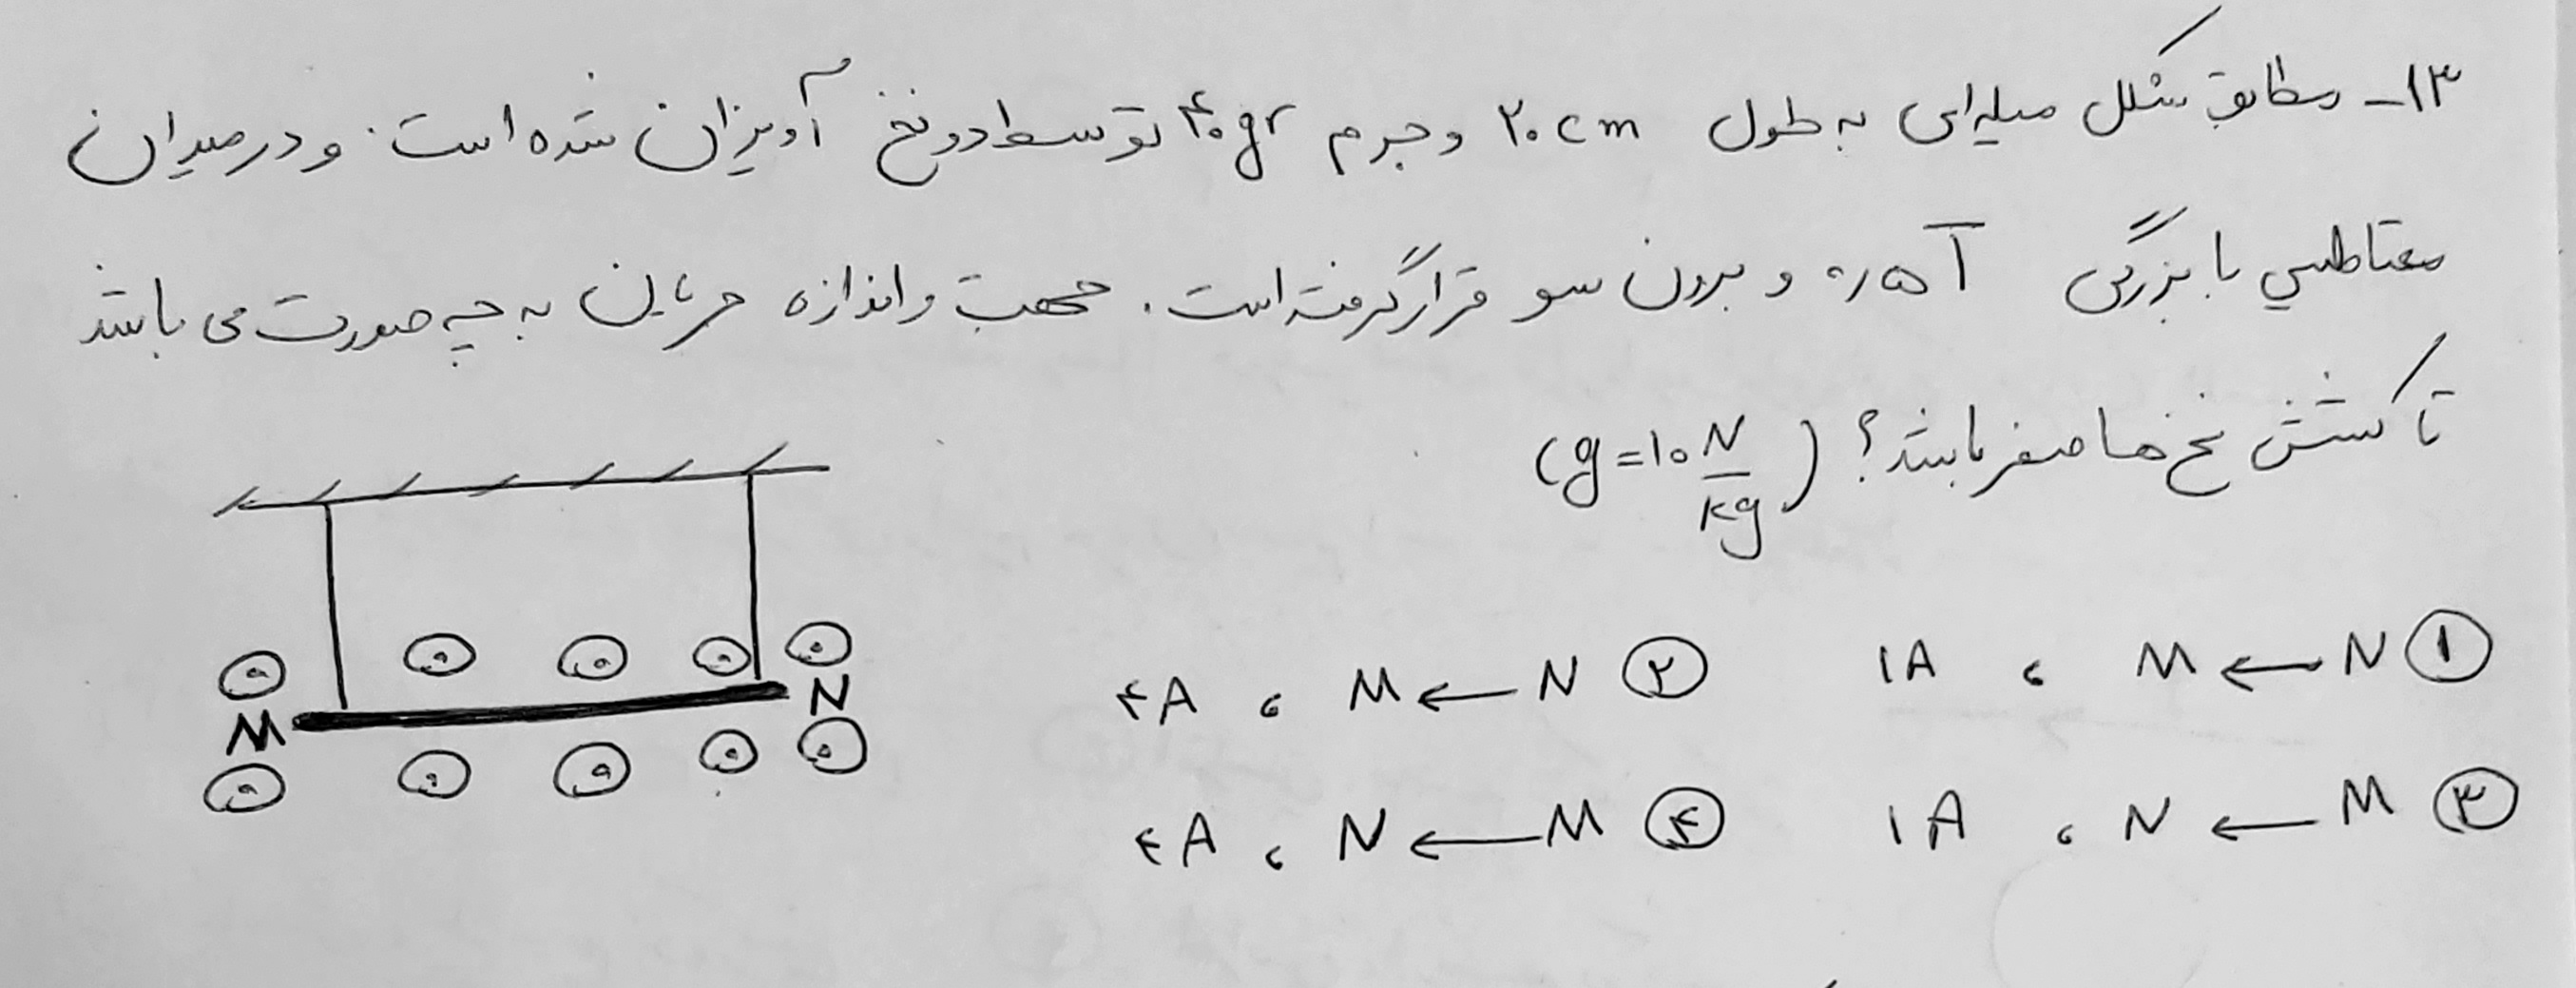 ۱۳- مطابق شکل میله‌ای به طول ۲۰cm و جرم ۴۰gr توسط دو نخ آویزان شده است. و در میدان
مغناطیسی با بزرگی ۰/۵T و برون سو قرار گرفته است. جهت و اندازه جریان به چه صورت می باشد
تا کشش نخ ها صفر باشد؟ (g=۱۰ N/kg)
① M ← N ، ۱A ② M ← N ، ۴A
③ N ← M ، ۱A ④ N ← M ، ۴A
M N